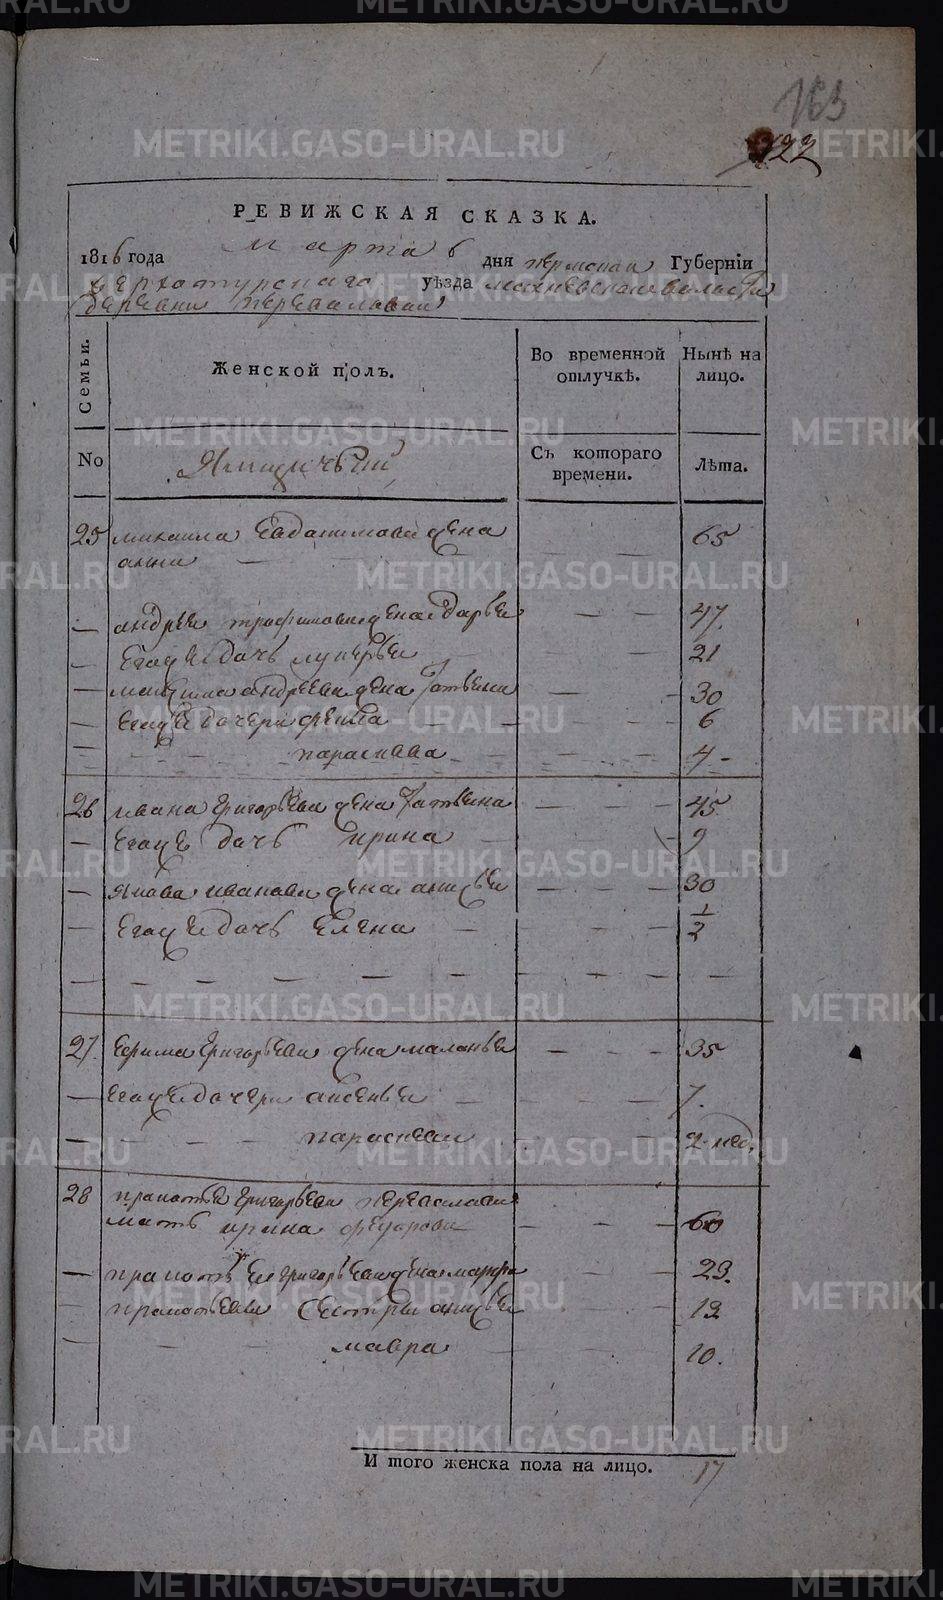 163
122
РЕВИЖСКАЯ СКАЗКА.
1816 года марта 6 дня пермской Губерніи
верхотурскаго уѣзда махневской воласти
деревни
Семьи.
Женской полъ.
Во временной отлучкѣ.
Нынѣ на лицо.
No
Ямщичьи
Съ котораго времени.
Лѣта.
25 михаила жена 65
анна
— андрея трофимова жена дарья — — 47.
— Его же дочь лукерья 21
— андреева жена татьяна — — 30
— Его же дочери фекла — — 6
— — — параскава — — 4
26 ивана григорьева жена татьяна — — — 45
— Егоже дочь ирина — — 9
— Якова иванова жена анисья — — — 30
— Егоже дочь Елена — — — 1/2
27. Ефима григорьева жена маланья — — — 35
— Егоже дочери аксенья — — — 7.
— — — — параскева — — 2 нед.
28 григорьева
мать ирина — — — 60
— григорьева жена марфа — — 23.
— сестры анисья — — 12
— — — мавра — — 10.
И того женска пола на лицо. 17
METRIKI.GASO-URAL.RU